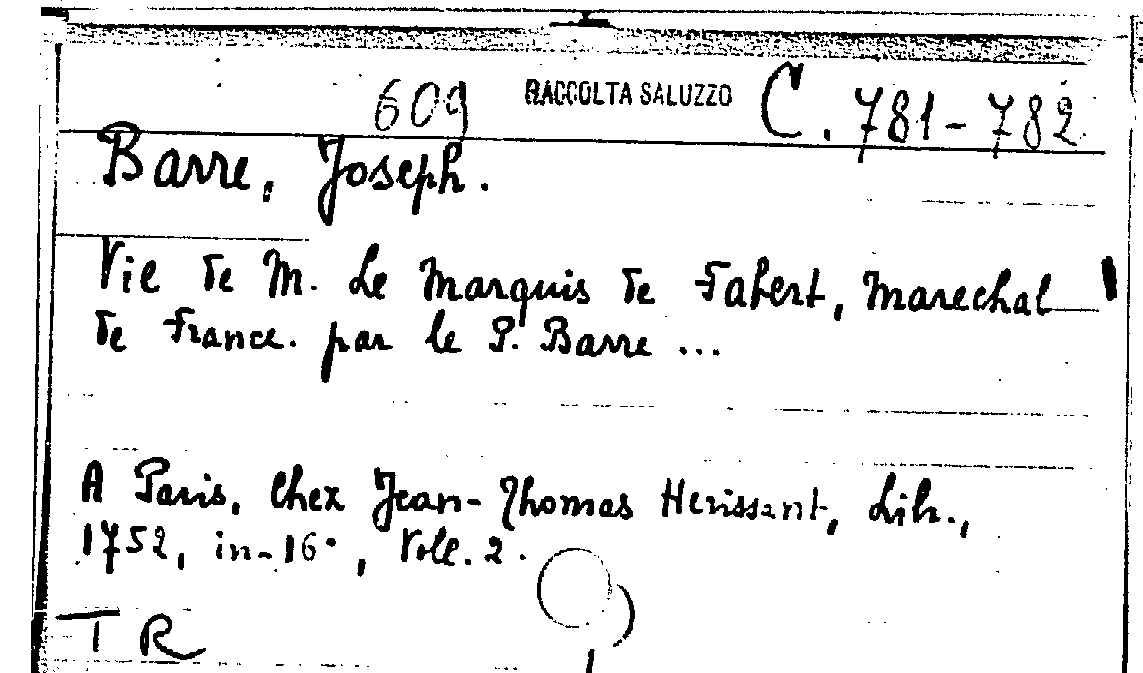 609 RACCOLTA SALUZZO C. 781-782
Barre, Joseph.
Vie de M. Le Marquis de Fabert, Marechal
de France. par le P. Barre ...
A Paris, Chez Jean-Thomas Herissant, Lib.,
1752, in-16°, Voll. 2.
T R